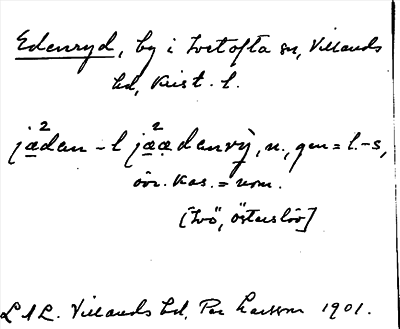 Edenryd, by i Ivetofta sn, Villands
hd, Krist. l.
jä²dan- l jä²ädanrỳ, n., gen = l. -s,
övr. kas. = nom.
[Ivö, Österslöv]
LAL. Villands hd, Per Larsson 1901.